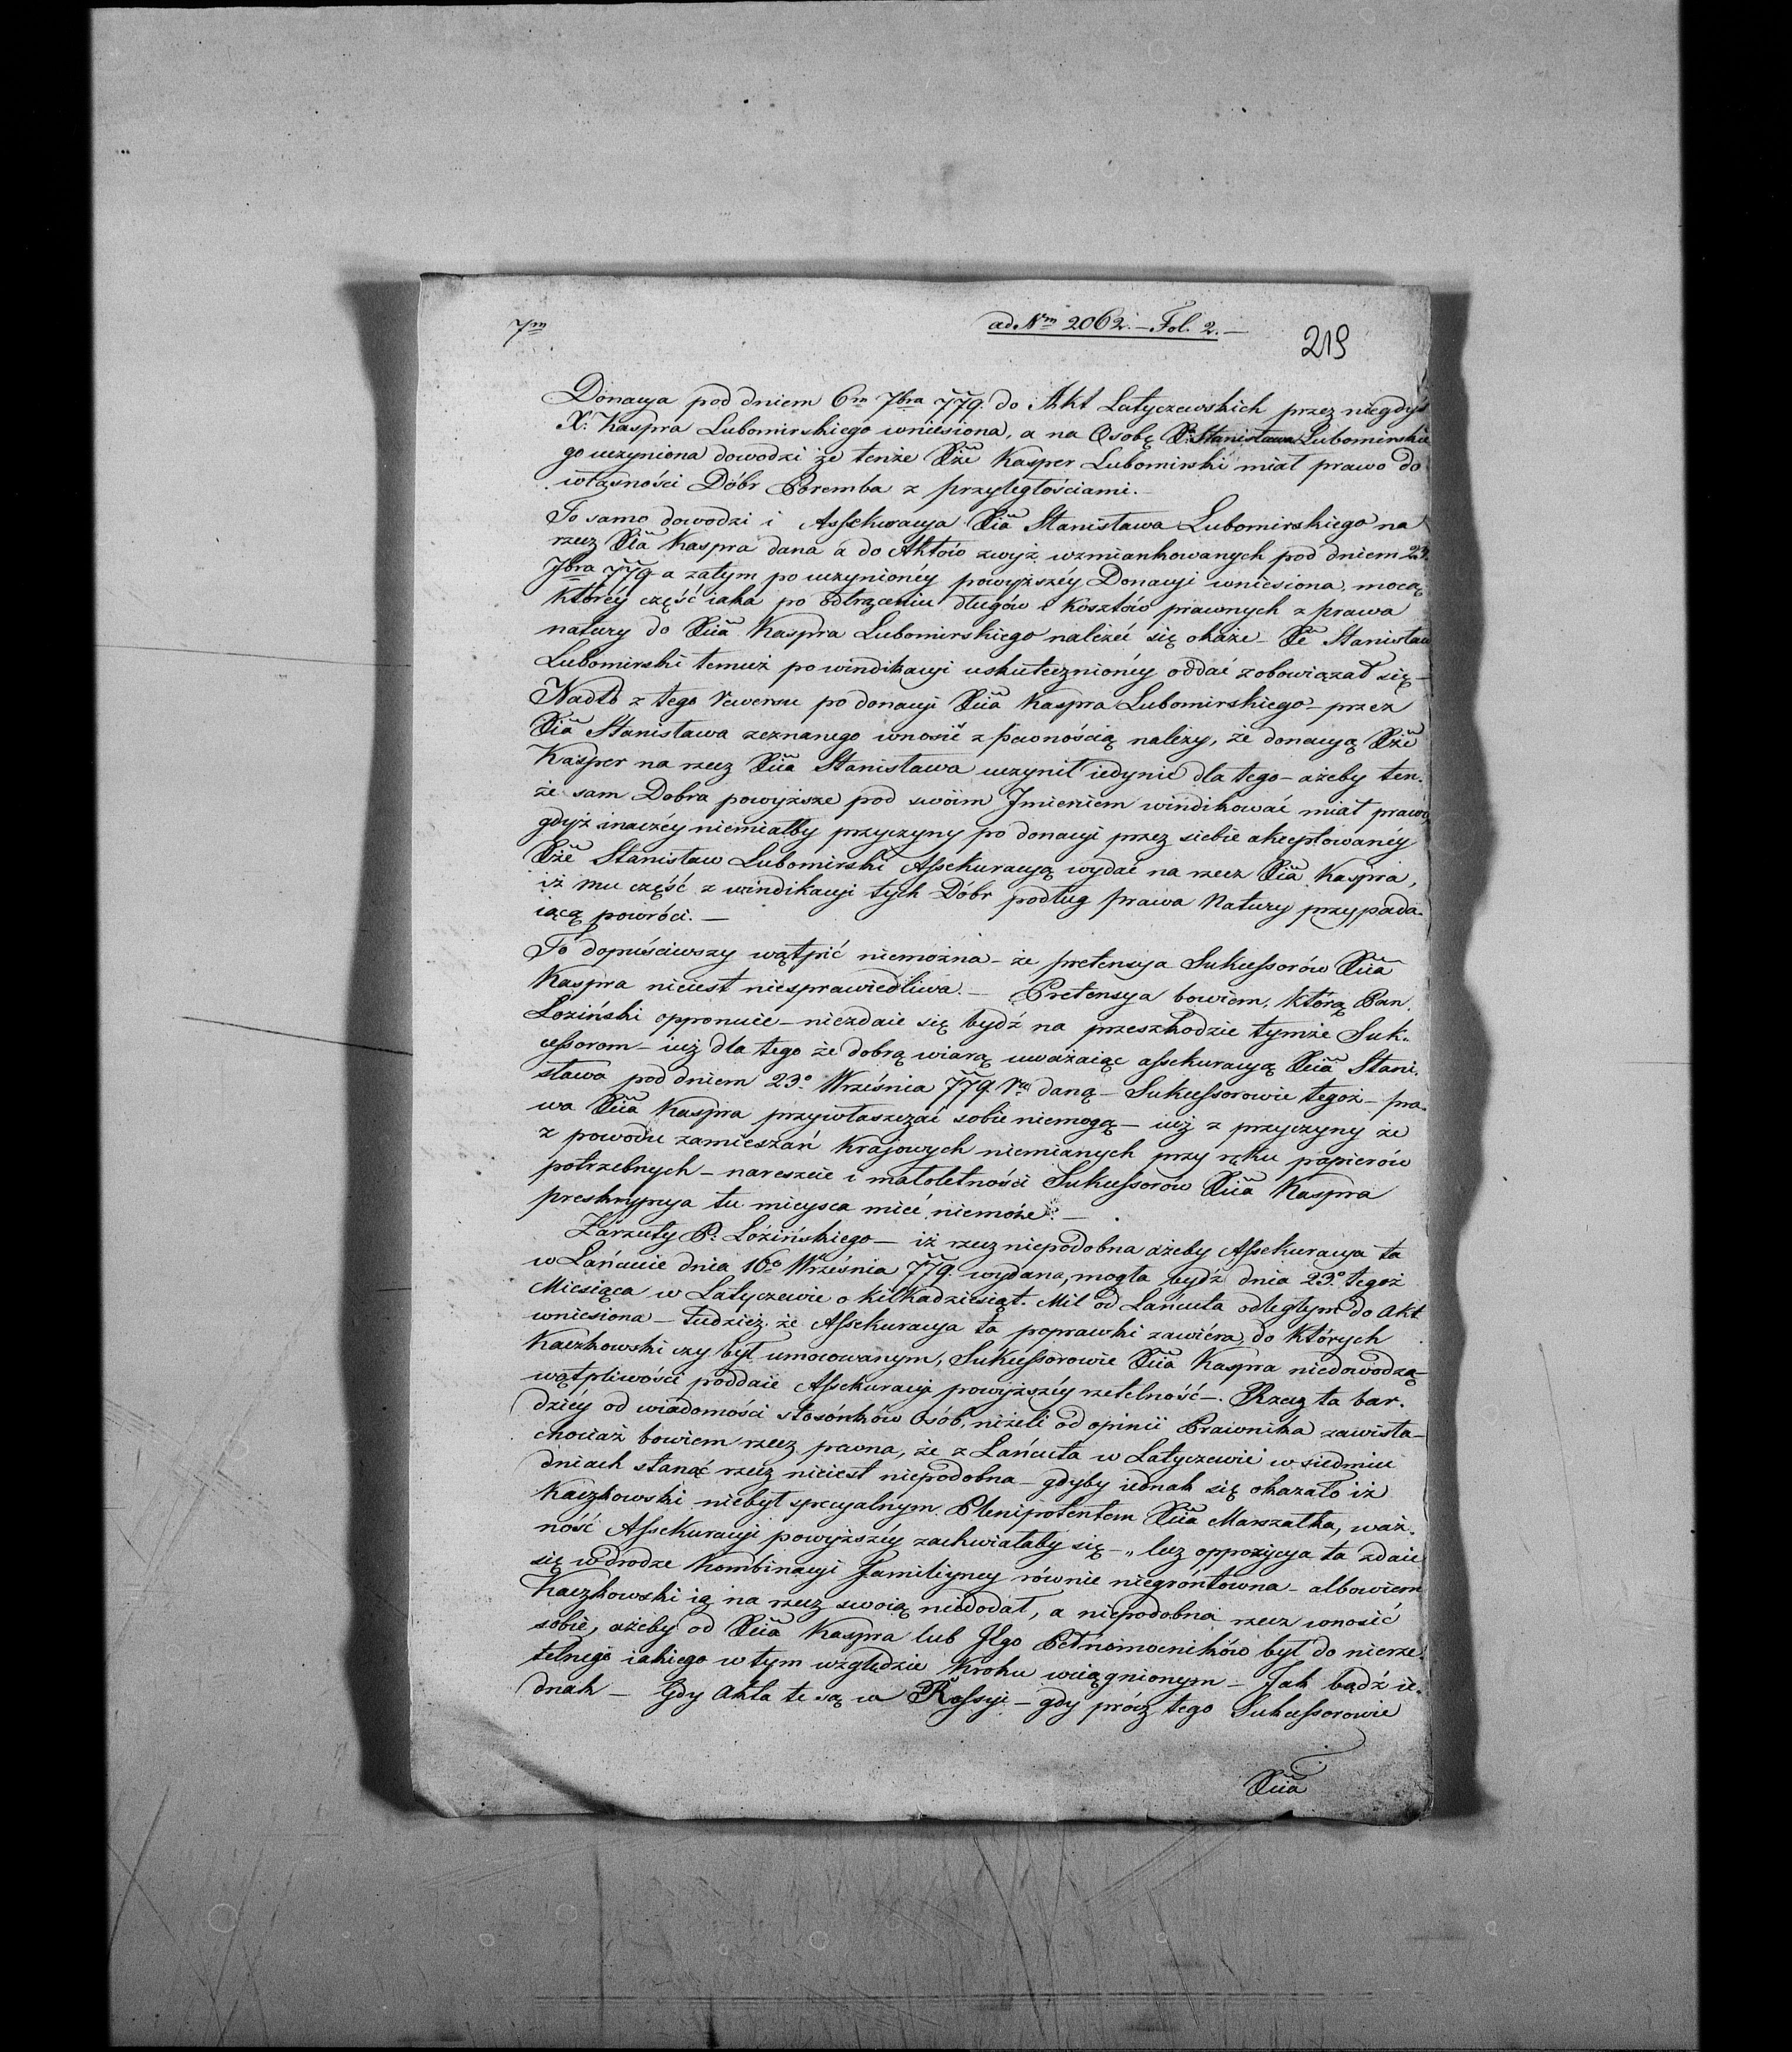 7m
ad Nm 2062. – Fol. 2. –
219
Donacya pod dniem 6m 7bra 779. do Akt Latyczewskich przez niegdyś
X. Kaspra Lubomirskiego wniesiona, a na Osobę X. Stanisława Lubomirskie
go uczyniona dowodzi że tenże Xże Kasper Lubomirski miał prawo do
własności Dóbr Poremba z przyległościami. –
To samo dowodzi i Assekuracya Xia Stanisława Lubomirskiego na
rzecz Xia Kaspra dana a do Aktów zwyż wzmiankowanych pod dniem 23.
7bra 779 a zatym po uczynionéy powyższéy Donacyi wniesiona, mocą
któréy część iaka po odtrąceniu długów i kosztów prawnych z prawa
natury do Xcia Kaspra Lubomirskiego należeć się okaże – Xe Stanisław
Lubomirski temuż po windikacyi uskutecznionéy oddać zobowiązał się –
Nadto z tego rewersu po donacyi Xcia Kaspra Lubomirskiego – przez
Xia Stanisława zeznanego wnosić z pewnością należy, że donacyą Xże
Kasper na rzecz Xcia Stanisława uczynił iedynie dla tego – ażeby ten.
że sam Dobra powyższe pod swóim Jmieniem windikować miał prawo,
gdyż inaczéy niemiałby przyczyny po donacyi przez siebie akceptowanéy
Xże Stanisław Lubomirski Assekuracyą wydać na rzecz Xia Kaspra,
iż mu część z windikacyi tych Dóbr podług prawa Natury przypada.
iącą powróci. –
To dopuściwszy wątpić niemożna – że pretensya Sukcessorów Xcia
Kaspra nieiest niesprawiedliwa. – Pretensya bowiem, którą Pan
Łoziński opponuie – niezdaie się bydź na przeszkodzie tymże Suk.
cessorom – iuż dla tego że dobrą wiarą uważaiąc assekuracyą Xcia Stani.
sława pod dniem 23o Września 779 ru daną – Sukcessorowie tegoż – pra.
wa Xcia Kaspra przywłaszczać sobie niemogą – iuż z przyczyny że
z powodu zamieszań Krajowych niemianych przy ręku papierów
potrzebnych – nareszcie i małoletności Sukcessorów Xcia Kaspra
preskrypcya tu mieysca mieć niemoże. –
Zarzuty P. Łozińskiego – iż rzecz niepodobna ażeby Assekuracya ta
w Łańcucie dnia 16o Września 779. wydana, mogła bydź dnia 23o tegoż
Miesiąca w Latyczewie o kilkadziesiąt Mil od Łańcuta odległym do Akt
wniesiona – tudzież że Assekuracya ta poprawki zawiéra, do których
Kaczkowski czy był umocowanym, Sukcessorowie Xcia Kaspra niedowodzą –
wątpliwości poddaie Assekuracyi powyższéy rzetelność –. Rzecz ta bar.
dziéy od wiadomości stosónków Osób, niżeli od opinii Prawnika zawisła –
chociaż bowiem rzecz pewna, że z Łańcuta w Latyczewie w siedmiu
dniach stanąć rzecz nieiest niepodobna – gdyby iednak się okazało iż
Kaczkowski niebył specyalnym Plenipotentem Xcia Marszałka, waż.
ność Assekuracyi powyższéy zachwiałaby się – „ lecz oppozycya ta zdaie
się w drodze Kombinacyi familiyney równie niegróntowna – albowiem
Kaczkowski ią na rzecz swoią niedodał, a niepodobna rzecz wnosić
sobie, ażeby od Xcia Kaspra lub Jego Pełnomocników był do nierze.
telnego iakiego w tym względzie kroku wciągnionym – Jak bądź ie.
dnak – Gdy Akta te są w Rossyi – gdy prócz tego Sukcessorowie
Xcia